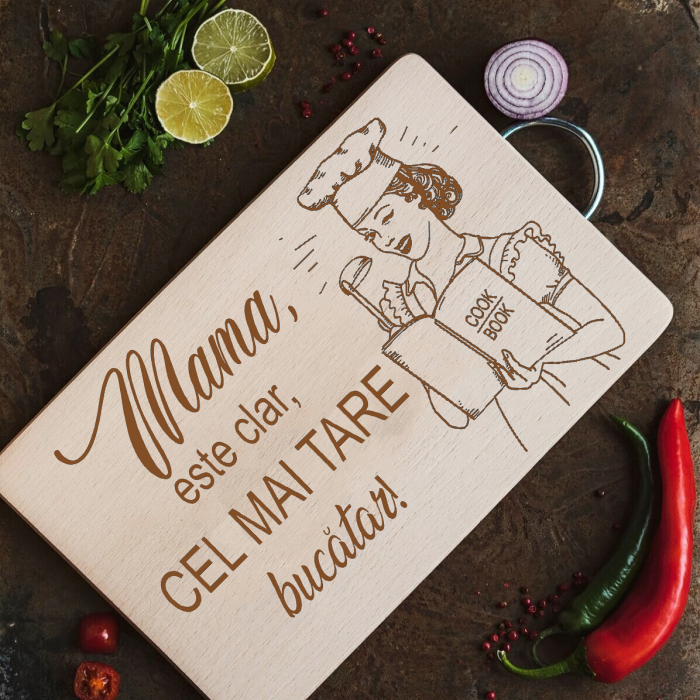 COOK
BOOK
Mama,
este clar,
CEL MAI TARE
bucătar!